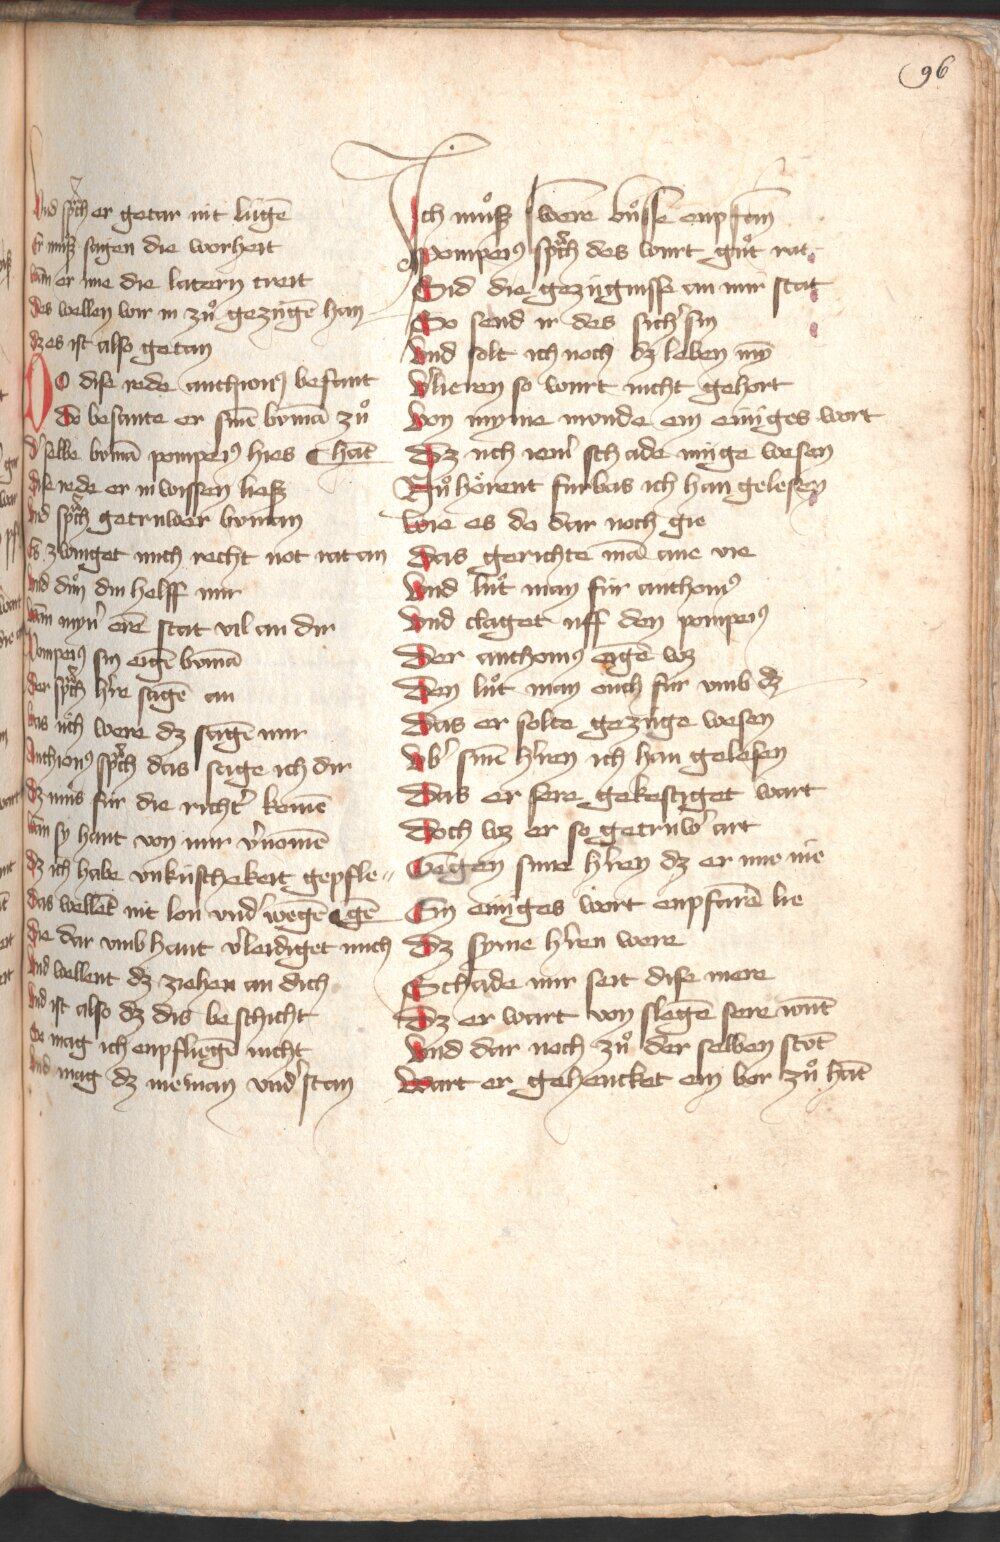 96
Vnd sprach er getar nit lúgē
Er muͦß sagen die worheit
wan er ime die latern treit
des wellen wir in zuͦ gezúgē han
dz es ist also getan
DO dise rede anthioniꝰ befant
do besante er sinē bꝛmā zuͦ
dˢ selbe bꝛmā pompeiꝰ hies hāt
dise rede er in wissen ließ
vnd sprach getruwer
Es zwinget mich recht not rat an
vnd duͦ din helff mir
wan mynˢ erē stat vil an dir
Pompeiꝰ sin eigē
der sprach hˢre sagē an
was úch were dz sagē mir
Anthioniꝰ sprach das sage ich dir
dz muͦs fúr die richtˢ komē
wan sy hant von mir vˢnomē
dz ich habe vnkúschekeit gepfle⸗
das wellēt nit lon vndˢwegē gē
die dar vmb hant vˢleidiget mich
vnd wellent dz ziehen an dich
vnd ist also dz dis beschicht
So mag ich enpfliegē nicht
vnd mag dz nieman vndˢstan
Ich muͦß swere buͦsse enpfan
Pompeiꝰ sprach des wirt guͦt rat
Sid die gezúgnisse an mir stat
So send ir des sichˢ sin
vnd solt ich noch dz leben myn
vˢlieren so wirt nicht gehort
von myme monde ein einiges wort
dz úch iemˢ schade múge wesen
Nuͦ hoͤrent fúrbas ich han gelesen
wie es do dar noch gie
das gerichte mā ane vie
vnd luͦt man fúr anthoniꝰ
vnd claget uff den pompeiꝰ
Der anthoniꝰ eigē wz
den luͦt man ouch fúr vmb dz
das er solte gezúge wesen
vbˢ sinē hˢren ich han gelesen
das er sere gekestiget wart
doch wz er so getruwˢ art
Gegen sime hˢren dz er ime nie
Ein einiges wort enpfarē lie
dz syme hˢren were
Schade nur seit dise mere
dz er wart von slegē sere wūt
vnd dar noch zuͦ der selben stūt
wart er gehencket em bor zuͦ hāt